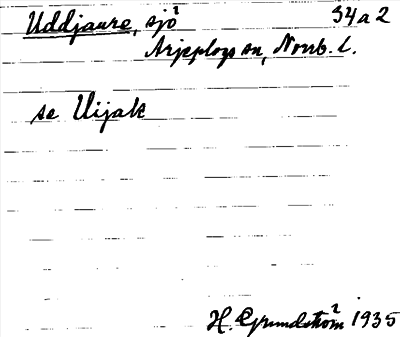 Uddjaure, sjö 34a2
Arjeplogs sn, Norrb. l.
se Uijak
H. Grundström 1935